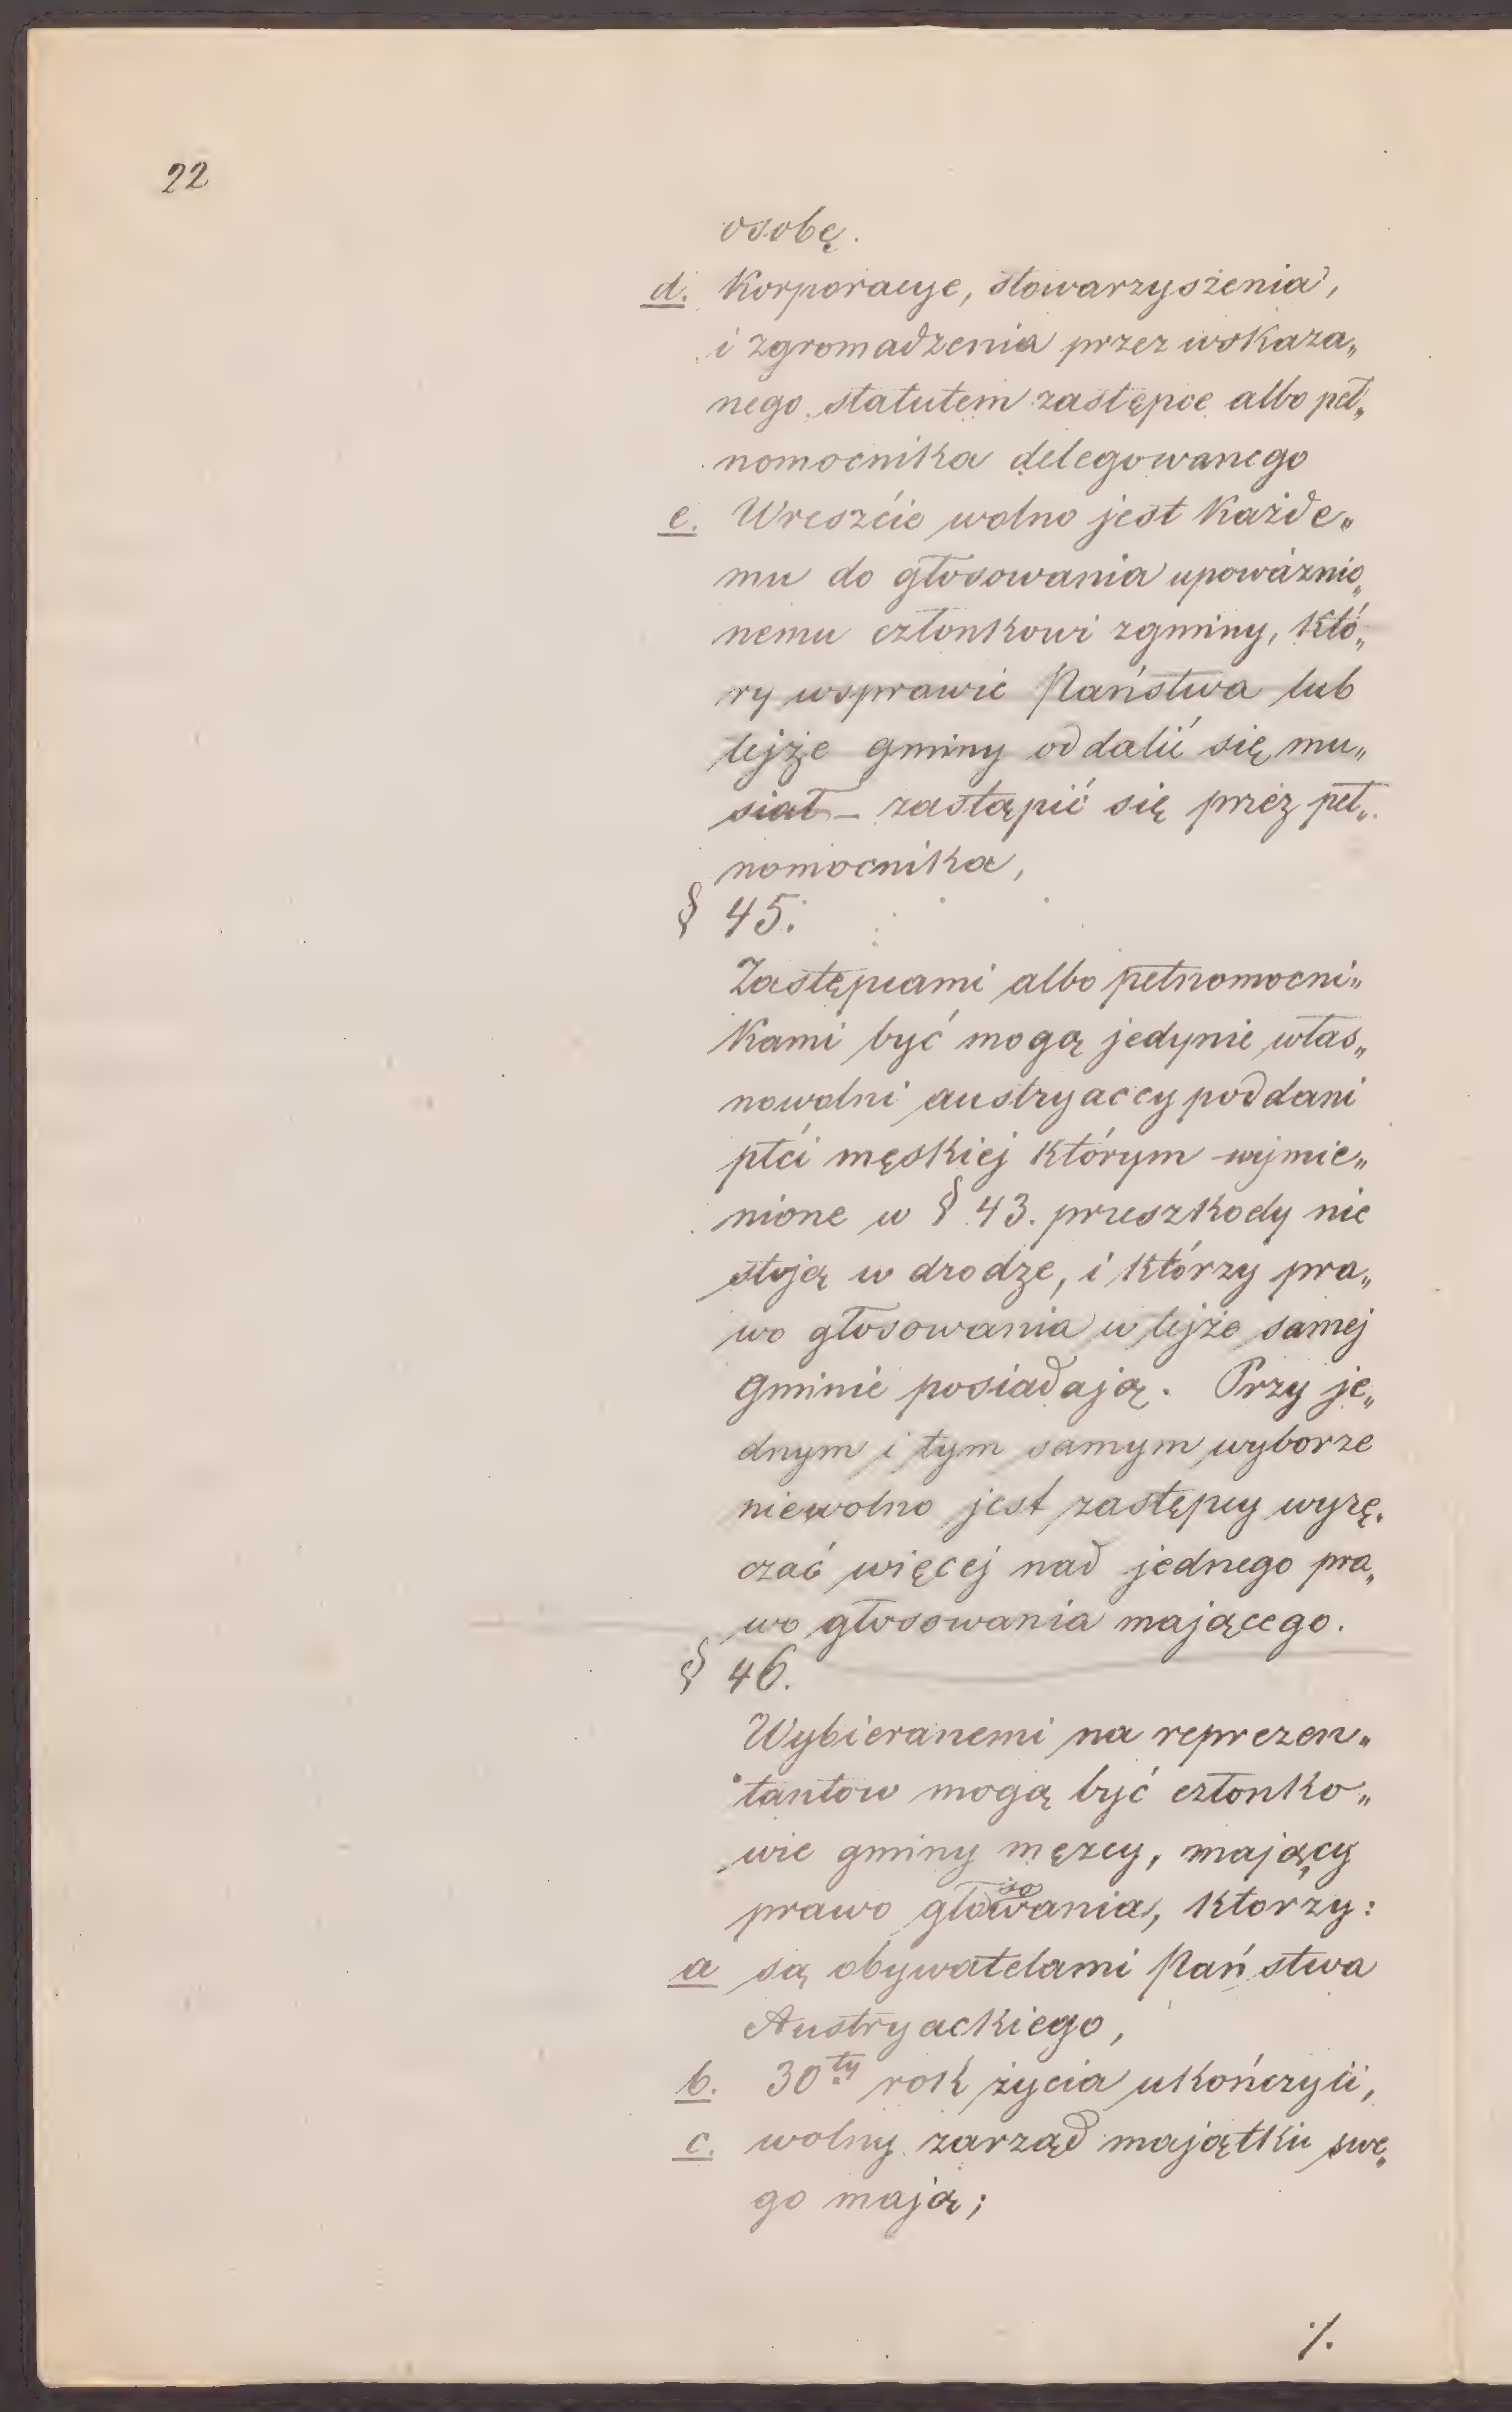 22
osobę.
d. Korporacye, stowarzyszenia,
i zgromadzenia przez wskaza„
nego statutem zastępce albo peł„
nomocnika delegowanego
e. Wreszcie wolno jest każde„
mu do głosowania upoważnio„
nemu członkowi zgminy, któ„
ry wsprawie Państwa lub
tejże gminy oddalić się mu„
siał – zastąpić się przez peł„
nomocnika,
§ 45.
Zastępcami albo pełnomocni„
kami być mogą jedynie włas„
nowolni austryaccy poddani
płci męskiej którym wymie„
nione w § 43. przeszkody nie
stoją w drodze, i którzy pra„
wo głosowania w tejże samej
gminie posiadają. Przy je„
dnym i tym samym wyborze
niewolno jest zastępcy wyrę„
czać więcej nad jednego pra„
wo głosowania mającego.
§ 46.
Wybieranemi na reprezen„
tantow mogą być członko„
wie gminy męzcy, mający
prawo głosowania, ktorzy:
a są obywatelami Państwa
Austryackiego,
b. 30ty rok życia ukończyli,
c. wolny zarząd majątku swe„
go mają;
·/.